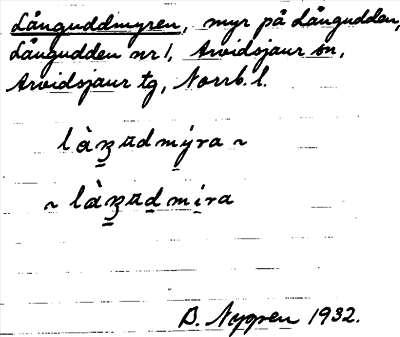 Långuddmyren, myr på Långudden,
Långudden nr 1, Arvidsjaur sn,
Arvidsjaur tg, Norrb. l.
làʒ̱ɯdmýra ~
~ làʒ̱ɯd̲mi̲ra
B. Nygren 1932.